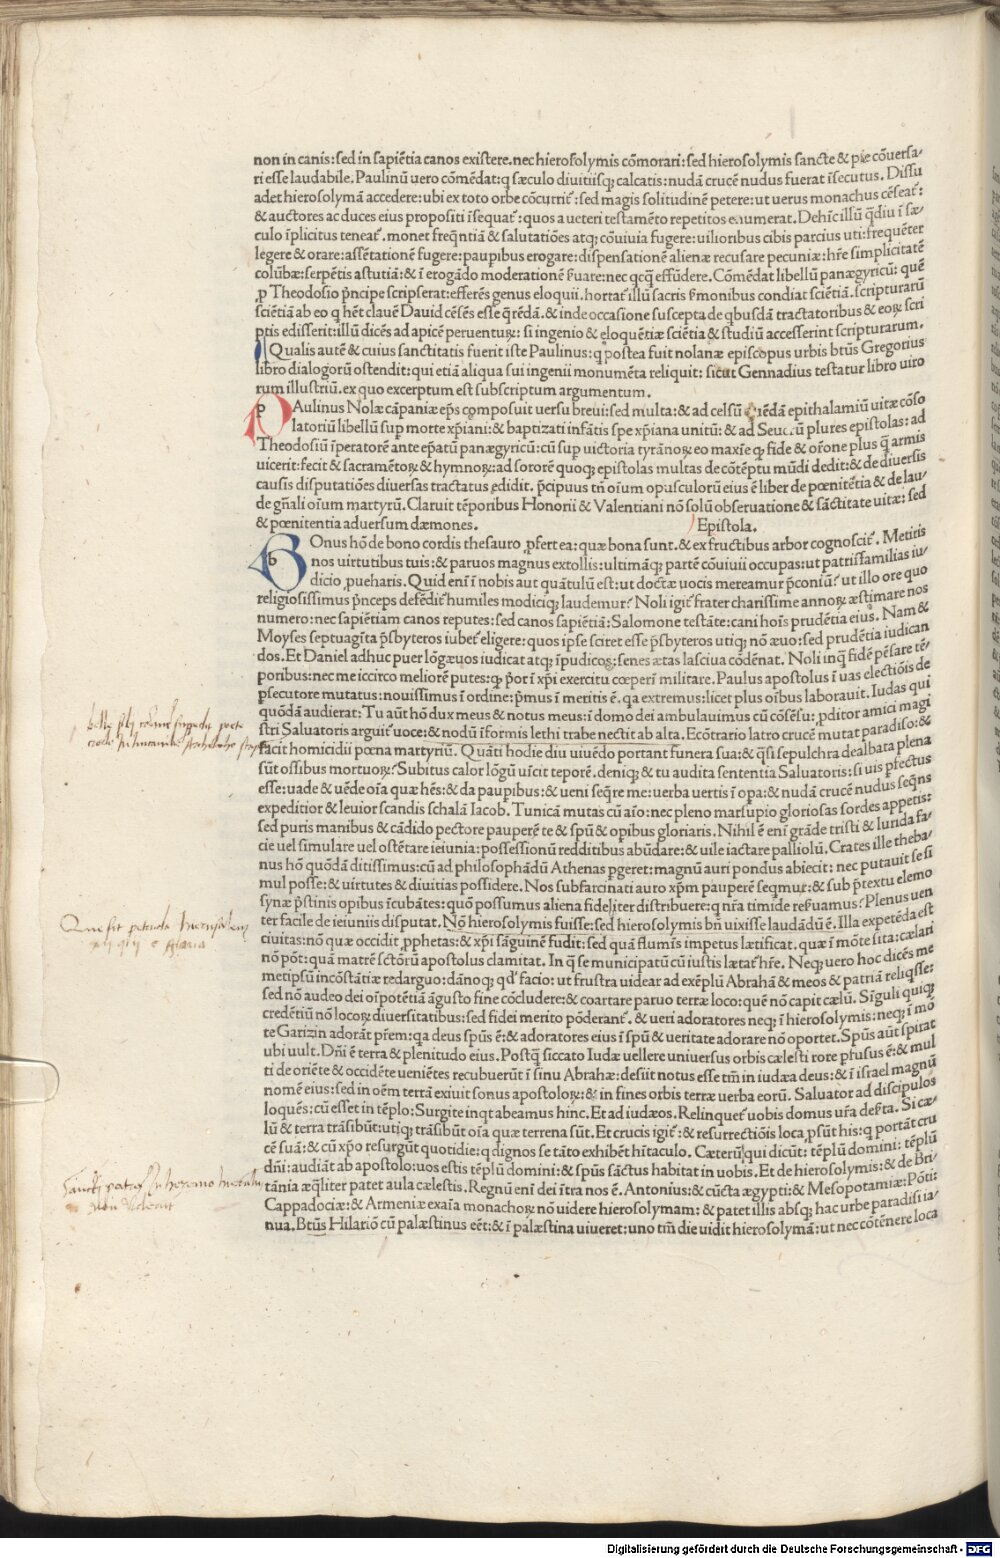 non in canis: sed in sapiẽtia canos existere. nec hierosolymis cõmorari: sed hierosolymis sancte & pie cõuersa/
ri esse laudabile. Paulinũ uero cõmẽdat: q sæculo diuitiisq; calcatis: nudã crucẽ nudus fuerat ĩsecutus. Dissu
adet hierosolymã accedere: ubi ex toto orbe cõcurrit᷑: sed magis solitudinẽ petere: ut uerus monachus cẽseat᷑:
& auctores ac duces eius propositi ĩsequat᷑: quos a ueteri testamẽto repetitos enumerat. Dehĩc illũ q̃diu ĩ sæ/
culo ĩplicitus teneat᷑. monet freq̃ntiã & salutatiões atq; cõuiuia fugere: uilioribus cibis parcius uti: frequẽter
legere & orare: assẽtationẽ fugere: paupibus erogare: dispensationẽ alienæ recusare pecuniæ: hr̃e simplicitatẽ
colũbæ: serpẽtis astutiã: & ĩ erogãdo moderationẽ ẜuare: nec qcq̃ effũdere. Cõmẽdat libellũ panægyricũ: quẽ
ꝓ Theodosio p̃ncipe scripserat: efferẽs genus eloquii. hortat᷑ illũ sacris ẜmonibus condiat sciẽtiã. scripturarũ
sciẽtiã ab eo q hẽt clauẽ Dauid cẽsẽs esse q̃rẽdã. & inde occasione suscepta de qbusdã tractatoribus & eoꝝ scri
ptis edisserit: illũ dicẽs ad apicẽ peruentuꝝ: si ingenio & eloquẽtiæ sciẽtia & studiũ accesserint scripturarum.
Qualis autẽ & cuius sanctitatis fuerit iste Paulinus: q postea fuit nolanæ episcopus urbis btũs Gregorius
libro dialogorũ ostendit: qui etiã aliqua sui ingenii monumẽta reliquit: sicut Gennadius testatur libro uiro
rum illustriũ. ex quo excerptum est subscriptum argumentum.
PAulinus Nolæ cãpaniæ ep̃s composuit uersu breui: sed multa: & ad celsũ quẽdã epithalamiũ uitæ cõso
latoriũ libellũ sup morte xp̃iani: & baptizati infãtis spe xp̃iana unitũ: & ad Seuerũ plures epistolas: ad
Theodosiũ ĩperatorẽ ante ep̃atũ panægyricũ: cũ sup uictoria tyrãnoꝝ eo maxĩe q fide & or̃one plus q̃ armis
uicerit: fecit & sacramẽtoꝝ & hymnoꝝ: ad sororẽ quoq; epistolas multas de cõtẽptu mũdi dedit: & de diuersis
causis disputatiões diuersas tractatus ędidit. p̃cipuus tñ oĩum opusculorũ eius ẽ liber de pœnitẽtia & de lau/
de gñali oĩum martyrũ. Claruit tẽporibus Honorii & Valentiani nõ solũ obseruatione & sãctitate uitæ: sed
& pœnitentia aduersum dæmones.
Epistola.
BOnus hõ de bono cordis thesauro ꝓfert ea: quæ bona sunt. & ex fructibus arbor cognoscit᷑. Metiris
nos uirtutibus tuis: & paruos magnus extollis: ultimãq; partẽ cõuiuii occupas: ut patrisfamilias iu/
dicio ꝓueharis. Quid enĩ ĩ nobis aut quãtulũ est: ut doctæ uocis mereamur p̃coniũ? ut illo ore quo
religiosissimus p̃nceps defẽdit᷑ humiles modiciq; laudemur? Noli igit᷑ frater charissime annoꝝ æstimare nos
numero: nec sapiẽtiam canos reputes: sed canos sapiẽtiã: Salomone testãte: cani hoĩs prudẽtia eius. Nam &
Moyses septuagĩta p̃sbyteros iubet᷑ eligere: quos ipse sciret esse p̃sbyteros utiq; nõ æuo: sed prudẽtia iudican
dos. Et Daniel adhuc puer lõgæuos iudicat atq; ĩpudicos: senes ætas lasciua cõdẽnat. Noli inq̃ fidẽ pẽsare tẽ/
poribus: nec me iccirco meliorẽ putes: q̃ p̃or ĩ xp̃i exercitu cœperĩ militare. Paulus apostolus ĩ uas electiõis de
psecutore mutatus: nouissimus ĩ ordine: p̃mus ĩ meritis ẽ. qa extremus: licet plus oĩbus laborauit. Iudas qui
quõdã audierat: Tu aũt hõ dux meus & notus meus: ĩ domo dei ambulauimus cũ cõsẽsu: ꝓditor amici magi
stri Saluatoris arguit᷑ uoce: & nodũ ĩformis lethi trabe nectit ab alta. Ecõtrario latro crucẽ mutat paradiso: &
facit homicidii pœna martyriũ. Quãti hodie diu uiuẽdo portant funera sua: & q̃si sepulchra dealbata plena
sũt ossibus mortuoꝝ? Subitus calor lõgũ uĩcit teporẽ. deniq; & tu audita sententia Saluatoris: si uis ꝑfectus
esse: uade & uẽde oĩa quæ hẽs: & da paupibus: & ueni seq̃re me: uerba uertis ĩ opa: & nudã crucẽ nudus seq̃ns
expeditior & leuior scandis schalã Iacob. Tunicã mutas cũ aĩo: nec pleno marsupio gloriosas sordes appetis:
sed puris manibus & cãdido pectore pauperẽ te & spũ & opibus gloriaris. Nihil ẽ enĩ grãde tristi & lurida fa/
cie uel simulare uel ostẽtare ieiunia: possessionũ redditibus abũdare: & uile iactare palliolũ. Crates ille theba/
nus hõ quõdã ditissimus: cũ ad philosophãdũ Athenas pgeret: magnũ auri pondus abiecit: nec putauit se si
mul posse: & uirtutes & diuitias possidere. Nos subfarcinati auro xp̃m pauperẽ seqmur: & sub p̃textu elemo
synæ p̃stinis opibus ĩcubãtes: quõ possumus aliena fideliter distribuere: q nr̃a timide reẜuamus? Plenus uen
ter facile de ieiuniis disputat. Nõ hierosolymis fuisse: sed hierosolymis bñ uixisse laudãdũ ẽ. Illa expetẽda est
ciuitas: nõ quæ occidit ꝓphetas: & xp̃i sãguinẽ fudit: sed quã flumĩs impetus lætificat. quæ ĩ mõte sita: cælari
nõ põt: quã matrẽ sctõrũ apostolus clamitat. In q̃ se municipatũ cũ iustis lætat᷑ hr̃e. Neq; uero hoc dicẽs me
metipsũ incõstãtiæ redarguo: dãnoq; qđ facio: ut frustra uidear ad exẽplũ Abrahã & meos & patriã reliq̃sse:
sed nõ audeo dei oĩpotẽtiã ãgusto fine cõcludere: & coartare paruo terræ loco: quẽ nõ capit cælũ. Sĩguli quiq;
credẽtiũ nõ locoꝝ diuersitatibus: sed fidei merito põderant᷑. & ueri adoratores neq; ĩ hierosolymis: neq; ĩ mõ
te Garizin adorãt pr̃em: qa deus spũs ẽ: & adoratores eius ĩ spũ & ueritate adorare nõ oportet. Spũs aũt spirat
ubi uult. Dñi ẽ terra & plenitudo eius. Postq̃ siccato Iudæ uellere uniuersus orbis cælesti rore ꝑfusus ẽ: & mul
ti de oriẽte & occidẽte ueniẽtes recubuerũt ĩ sinu Abrahæ: desiit notus esse tm̃ in iudæa deus: & ĩ israel magnũ
nomẽ eius: sed in oẽm terrã exiuit sonus apostoloꝝ: & in fines orbis terræ uerba eorũ. Saluator ad discipulos
loquẽs: cũ esset in tẽplo: Surgite inqt abeamus hinc. Et ad iudæos. Relinquet᷑ uobis domus ur̃a deẜta. Si cæ/
lũ & terra trãsibũt: utiq; trãsibũt oĩa quæ terrena sũt. Et crucis igit᷑: & resurrectiõis loca ꝓsũt his: q portãt cru
cẽ suã: & cũ xp̃o resurgũt quotidie: q dignos se tãto exhibẽt hĩtaculo. Cæterũ qui dicũt: tẽplũ domini: tẽplũ
dñi: audiãt ab apostolo: uos estis tẽplũ domini: & spũs sãctus habitat in uobis. Et de hierosolymis: & de Bri/
tãnia æq̃liter patet aula cælestis. Regnũ enĩ dei ĩtra nos ẽ. Antonius: & cũcta ægypti: & Mesopotamiæ: Põti:
Cappadociæ: & Armeniæ exaĩa monachoꝝ nõ uidere hierosolymam: & patet illis absq; hac urbe paradisi ia/
nua. Btũs Hilariõ cũ palæstinus eẽt: & ĩ palæstina uiueret: uno tm̃ die uidit hierosolymã: ut nec cõtẽnere loca
Digitalisierung gefördert durch die Deutsche Forschungsgemeinschaft - DFG